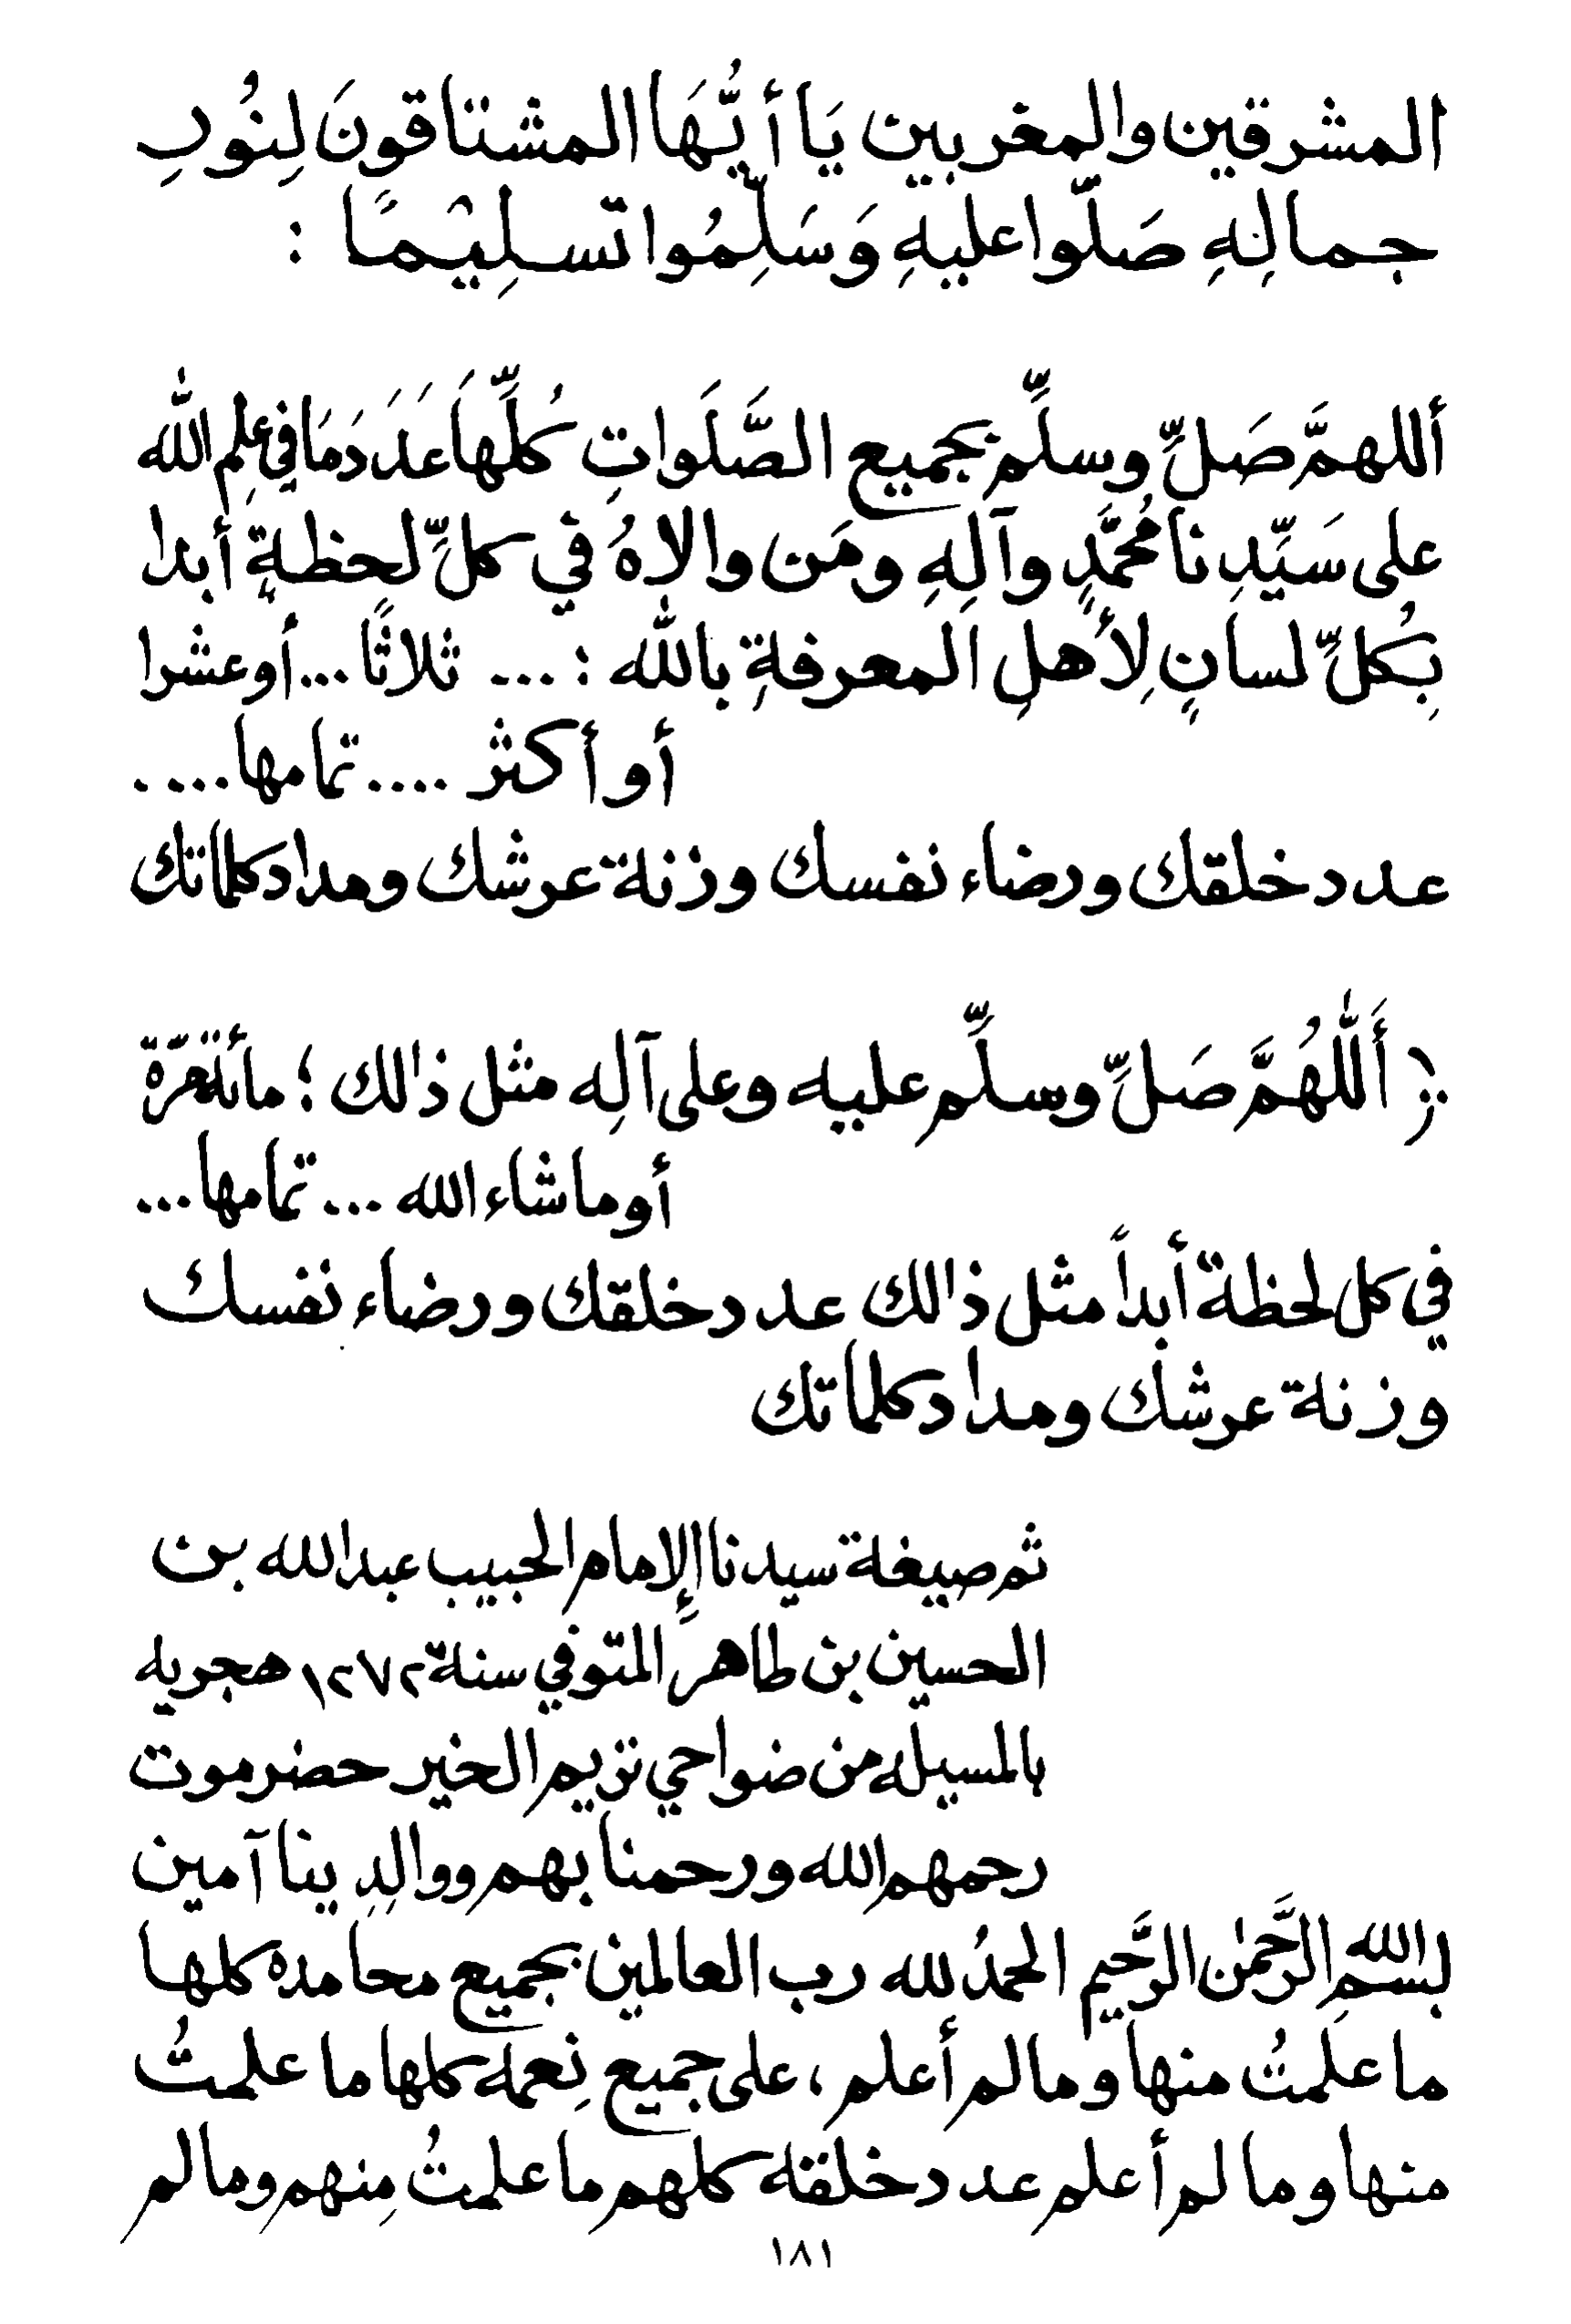 المشرقين والمغربين يَا أيُّهَا المشتاقونَ لِنُورِ
جمالِهِ صَلّوا عليهِ وَسَلِّمُوا تسلِيْمًا :
أللهمَّ صَلِّ وسلِّم بجميع الصَّلَواتِ كُلِّهَا عَدَدَمَا في عِلمِ الله
على سَيِّدِنا مُحمَّدٍ وآلِهِ ومَن والاهُ في كلِّ لحظةٍ أبدا
بِكُلِّ لسانٍ لِأهلِ المعرفةِ بالله : ... ثلاثًا ... أو عشرا
أو أكثر .... تمامها ....
عدد خلقك ورضاء نفسك وزنة عرشك ومداد كلماتك
أَللّٰهُمَّ صَلِّ وسلِّم عليه وعلى آلِه مثل ذالك ؛ مأتة مرّة
أو ما شاء الله ... تمامها ...
في كل لحظة أبداً مثل ذالك عدد خلقك ورضاء نفسك
وزنة عرشك ومداد كلماتك
ثم صيغة سيدنا الإمام الحبيب عبدالله بن
الحسين بن طاهر المتوفي سنة ١٢٧٢ هجريه
بالمسيله من ضواحي تريم الخير حضرموت
رحمهم الله ورحمنا بهم ووالِدِينا آمين
بسم الله الرَّحمٰن الرَّحيم الحمدُ لله رب العالمين بجميع محامده كلها
ما علمتُ منها وما لم أعلم ، على جميع نِعمه كلها ما علمتُ
منها وما لم أعلم عدد خلقه كلهم ما علمتُ مِنهم وما لم
١٨١